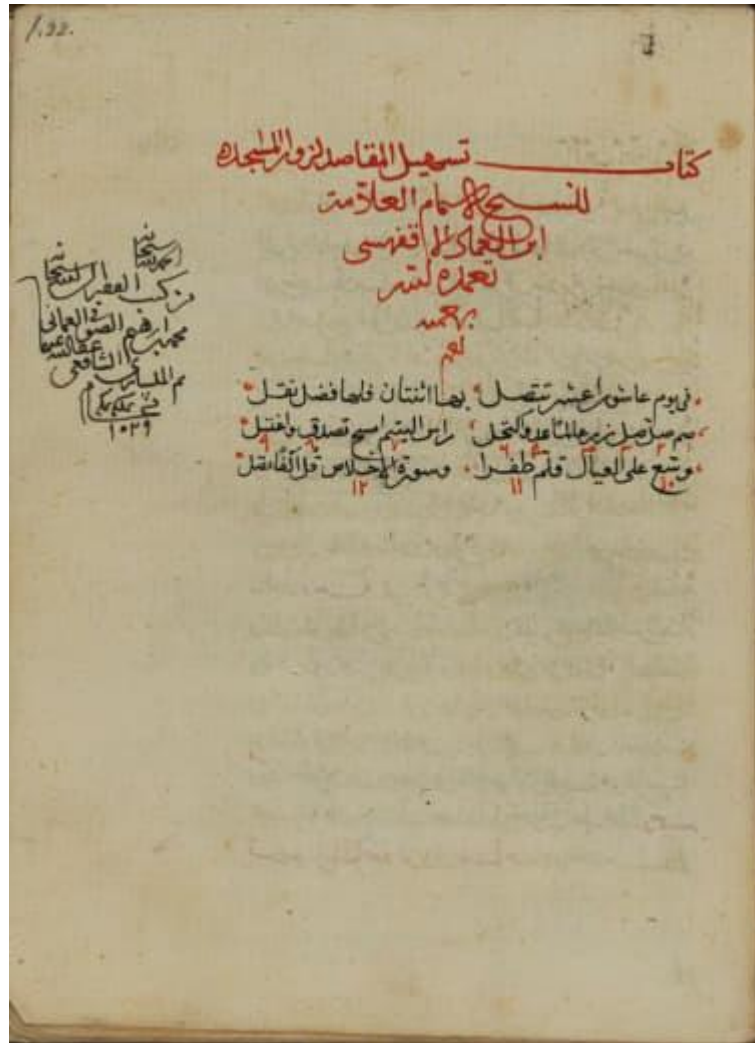 1.22.
كتاب تسهيل المقاصد لزوار المساجده
للشيخ الامام العلامة
ابن العماد الاقفهسي
تغمده الله
برحمته
احمد الله سبحانه
من كتب الفقير الى الله سبحانه
محمد ابرهيم الصوفي العماني
ثم الشافعي عفا الله عنهما
في
١٠٢٩
في يوم عاشوراء عشر تتصل بها اثنتان فلها فضل نقل
صم صل صل زر عالما عد واكتحل راس اليتيم امسح تصدق واغتسل
٢ ٣ ٤ ٥ ٦ ٧ ٨ ٩
وسع على العيال قلم ظفرا وسورة الاخلاص قل الفا نقل
١٠ ١١ ١٢